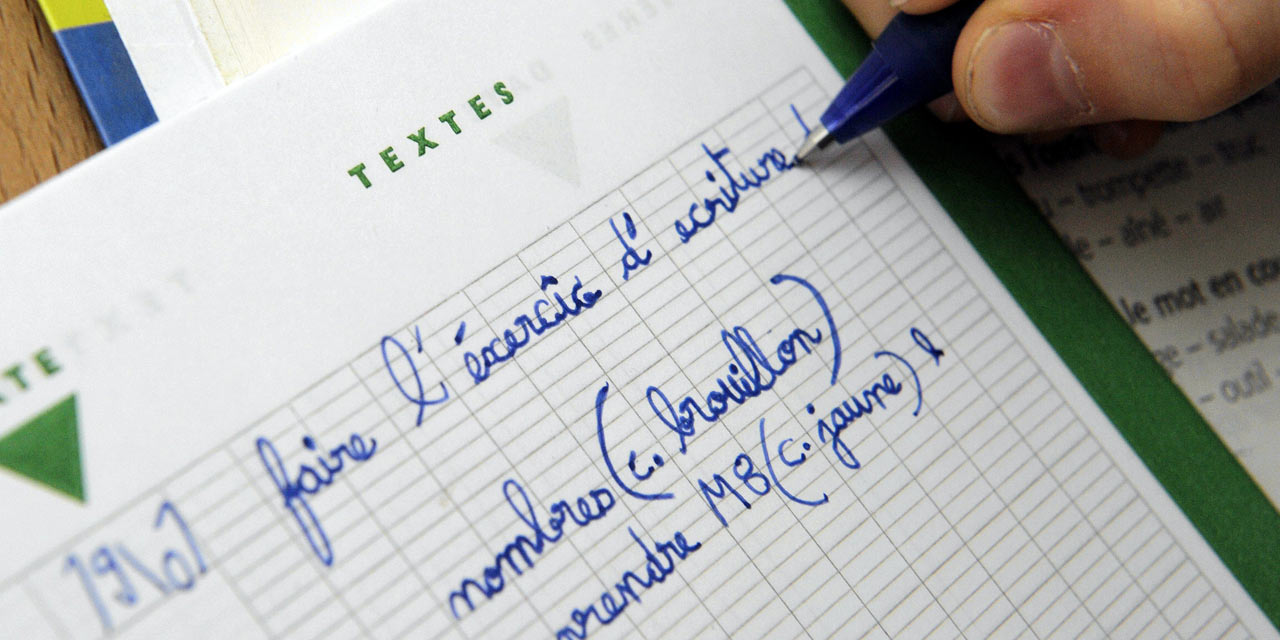 TEXTES
ATE
faire l'éxercice d'ecriture
nombres (c. brouillon)
prendre M8 (c. jaune)
– trompette –
– aîné –
le mot en
– salade
– outil